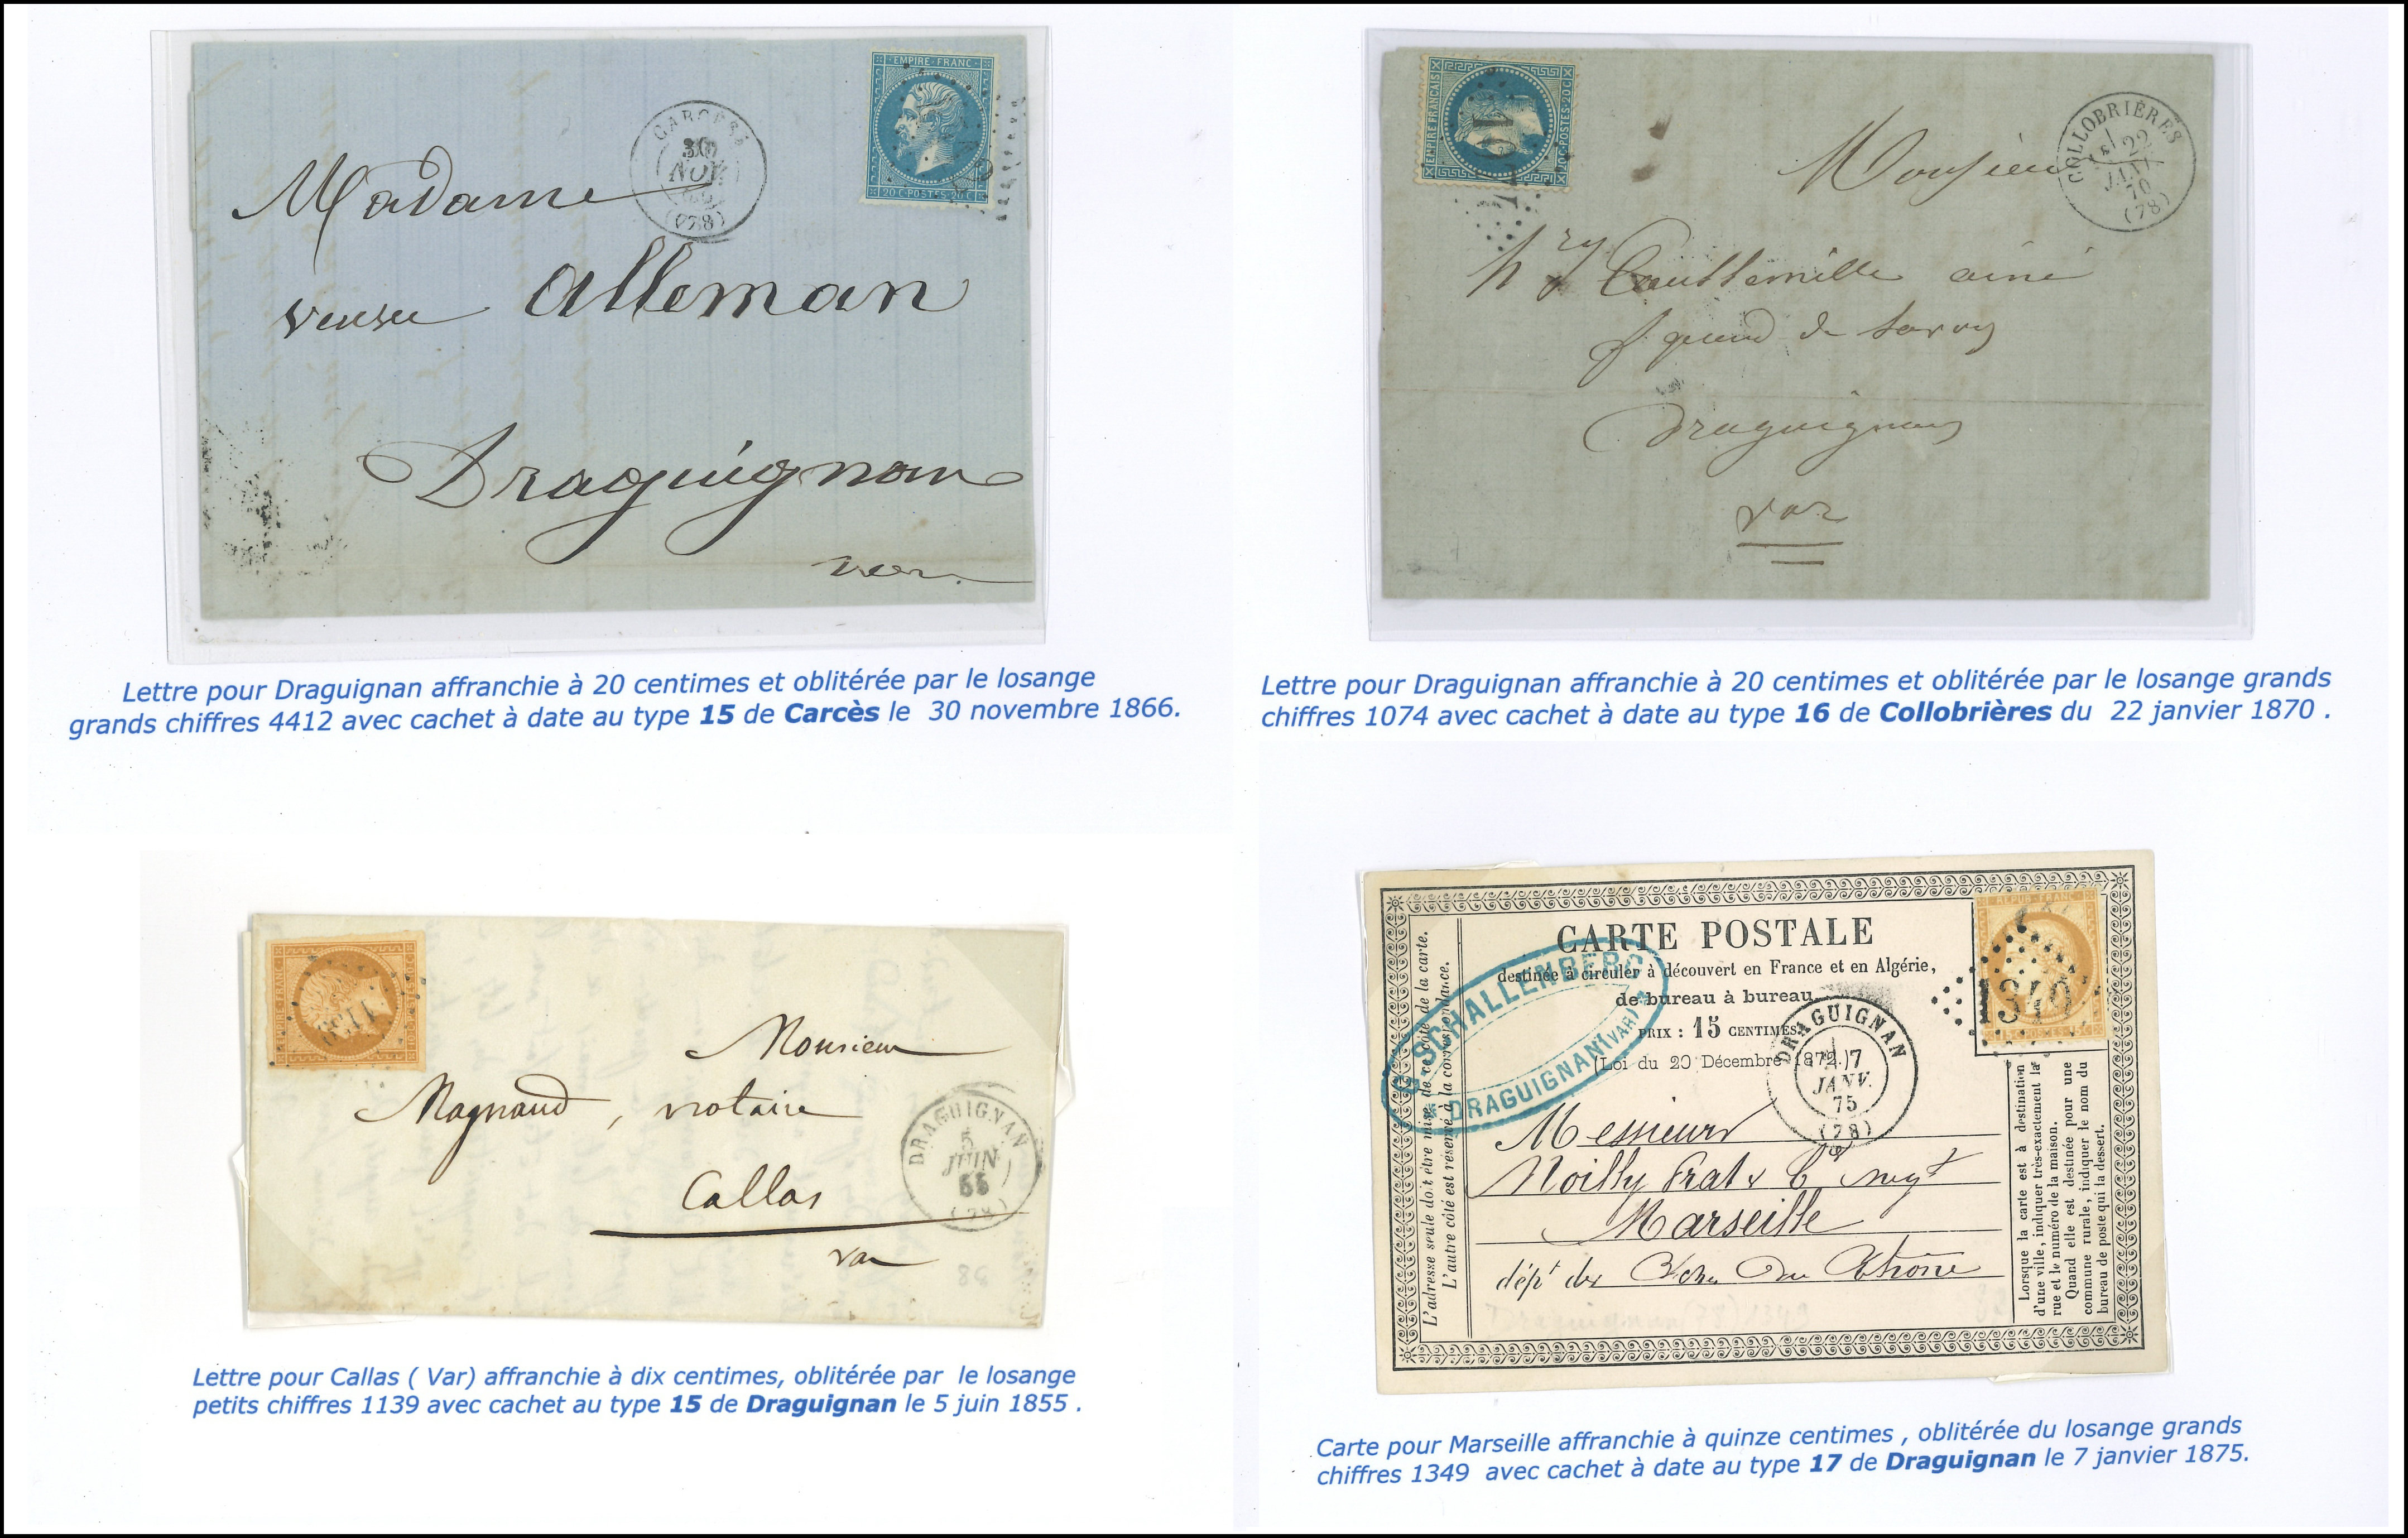 EMPIRE FRANC
20 C POSTES 20 C
CARCÈS
30
NOV.
(78)
Madame
veuve Alleman
Draguignan
Var
Lettre pour Draguignan affranchie à 20 centimes et oblitérée par le losange
grands chiffres 4412 avec cachet à date au type 15 de Carcès le 30 novembre 1866.
EMPIRE FRANÇAIS
20 C POSTES 20 C
1074
COLLOBRIÈRES
22
JANV.
70
(78)
Monsieur
ainé
Draguignan
Var
Lettre pour Draguignan affranchie à 20 centimes et oblitérée par le losange grands
chiffres 1074 avec cachet à date au type 16 de Collobrières du 22 janvier 1870 .
EMPIRE FRANC
1139
Monsieur
Magnaud, notaire
Callas
Var
DRAGUIGNAN
5
JUIN
55
(78)
Lettre pour Callas ( Var) affranchie à dix centimes, oblitérée par le losange
petits chiffres 1139 avec cachet au type 15 de Draguignan le 5 juin 1855 .
REPUB FRANC
1349
CARTE POSTALE
destinée à circuler à découvert en France et en Algérie,
de bureau à bureau.
PRIX : 15 CENTIMES.
(Loi du 20 Décembre 1872.)
SCHALLENBERG
DRAGUIGNAN (VAR)
DRAGUIGNAN
7
JANV.
75
(78)
Messieurs
Noilly Prat & Cie négt
Marseille
dépt des Bches du Rhône
L'adresse seule doit être mise de ce côté de la carte.
L'autre côté est réservé à la correspondance.
Lorsque la carte est à destination
d'une ville, indiquer très-exactement la
rue et le numéro de la maison.
Quand elle est destinée pour une
commune rurale, indiquer le nom du
bureau de poste qui la dessert.
Draguignan (78) 1349
Carte pour Marseille affranchie à quinze centimes , oblitérée du losange grands
chiffres 1349 avec cachet à date au type 17 de Draguignan le 7 janvier 1875.